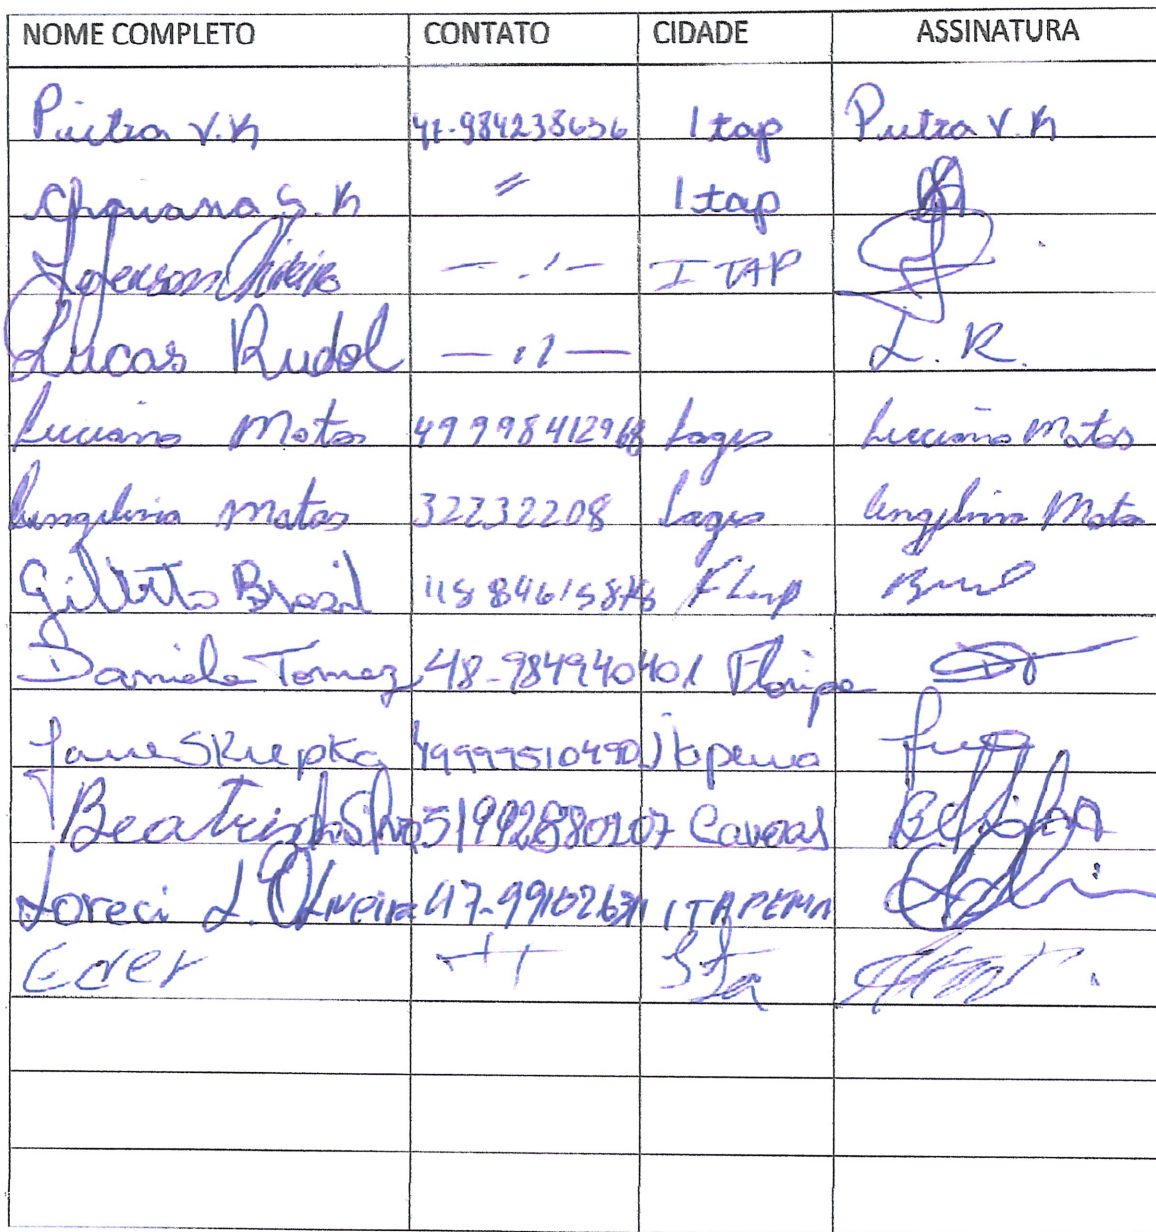 NOME COMPLETO CONTATO CIDADE ASSINATURA
Pietra V.K 47-984238636 Itap Pietra V.K
S. K " Itap
Oliveira — . / — ITAP
Lucas Rudol — 11 — L. R.
Luciano Matos 49998412968 Lages Luciano Matos
Angelina Matos 32232208 Lages Angelina Matos
Gilberto Brasil Flop
Daniela Tomaz 48-984940401 Floripa
Jane Skrepka 49999510490 Itapema
Beatriz da Silva 51992880207 Canoas
Loreci L. Oliveira ITAPEMA
Eder Ita